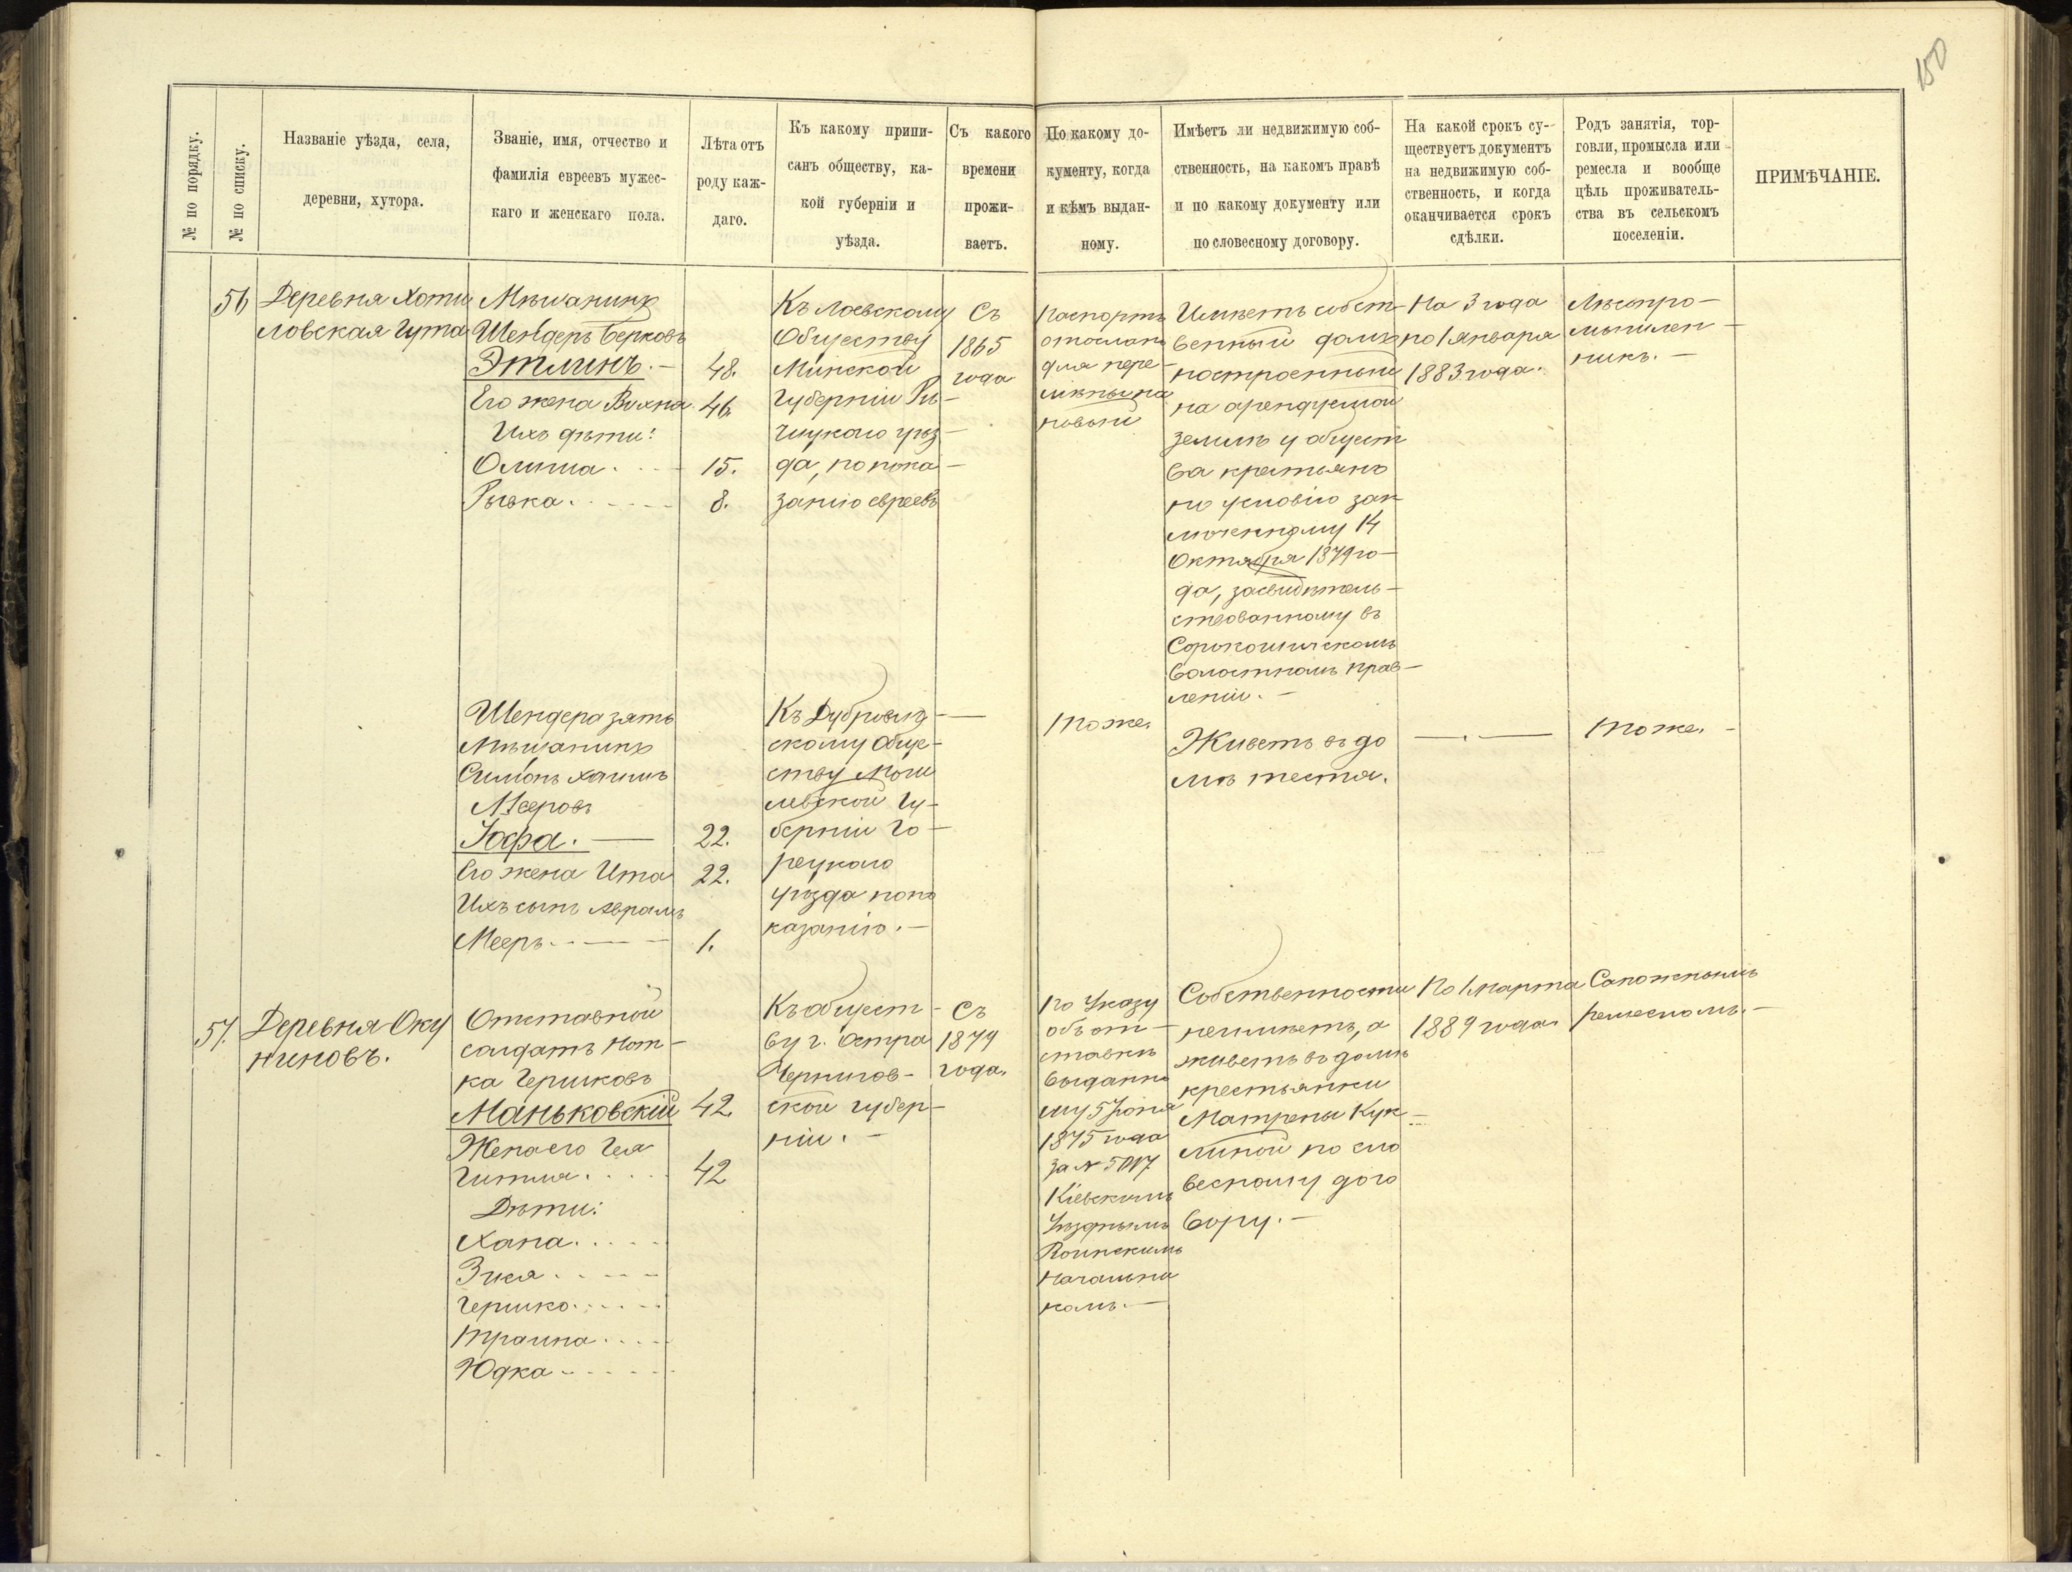 150
№ по порядку.
№ по списку.
Названіе уѣзда, села,
деревни, хутора.
Званіе, имя, отчество и
фамилія евреевъ мужес-
каго и женскаго пола.
Лѣта отъ
роду каж-
даго.
Къ какому припи-
санъ обществу, ка-
кой губерніи и
уѣзда.
Съ какого
времени
прожи-
ваетъ.
По какому до-
кументу, когда
и кѣмъ выдан-
ному.
Имѣетъ ли недвижимую соб-
ственность, на какомъ правѣ
и по какому документу или
по словесному договору.
На какой срокъ су-
ществуетъ документъ
на недвижимую соб-
ственность, и когда
оканчивается срокъ
сдѣлки.
Родъ занятія, тор-
говли, промысла или
ремесла и вообще
цѣль проживатель-
ства въ сельскомъ
поселеніи.
ПРИМѢЧАНІЕ.
56
Деревня Хоти
ловская Гута
Мѣщанинъ
Шендеръ Берковъ
Этлинъ. —
48.
Его жена Вихна
46
Ихъ дѣти:
Олиша . . —
15.
Рывка . . . . .
8.
Къ Лоевскому
Обществу
Минской
Губерніи Рѣ-
чицкаго уѣз-
да, по пока-
занію евреевъ
Съ
1865
года
Паспортъ
отосланъ
для пере-
мѣны на
новый
Имѣетъ собст-
венный домъ
построенный
на арендуемой
землѣ у общест
ва крестьянъ
по условію зак
люченному 14
Октября 1879 го-
да, засвидѣтель-
ствованному въ
Сорокошичскомъ
волостномъ прав-
леніи. —
На 3 года
по 1 Января
1883 года.
Лѣспро-
мышлен-
никъ. —
Шендера зять
Мѣщанинъ
Симонъ Хаимъ
Мееровъ
Іофа. —
22.
Его жена Ита
22.
Ихъ сынъ Аврамъ
Мееръ . . — —
1.
Къ Дубровин-
скому Обще-
ству Моги
левской Гу-
берніи Го-
рецкаго
уѣзда по по
казанію. —
—
Тоже.
Живетъ въ до
мѣ тестя.
— . —
Тоже. —
57.
Деревня Оку
ниновъ.
Отставной
солдатъ Нот-
ка Гершковъ
Маньковскій
42
Жена его Гея
Гитля . . . . .
42
Дѣти:
Хана . . . . .
Зися . . . . .
Гершко . . . . .
Траина . . . .
Юдка . . . . .
Къ общест-
ву г. Остра
Чернигов-
ской губер-
ніи. —
Съ
1879
года.
По Указу
объ от-
ставкѣ
выданно
му 5 Іюня
1875 года
за №
Кіевскимъ
Уѣзднымъ
Воинскимъ
Начальни
комъ. —
Собственности
неимѣетъ, а
живетъ въ домѣ
крестьянки
Матрены Кук-
линой по сло
весному дого
вору. —
По 1 марта
1889 года.
Сапожнымъ
ремесломъ. —